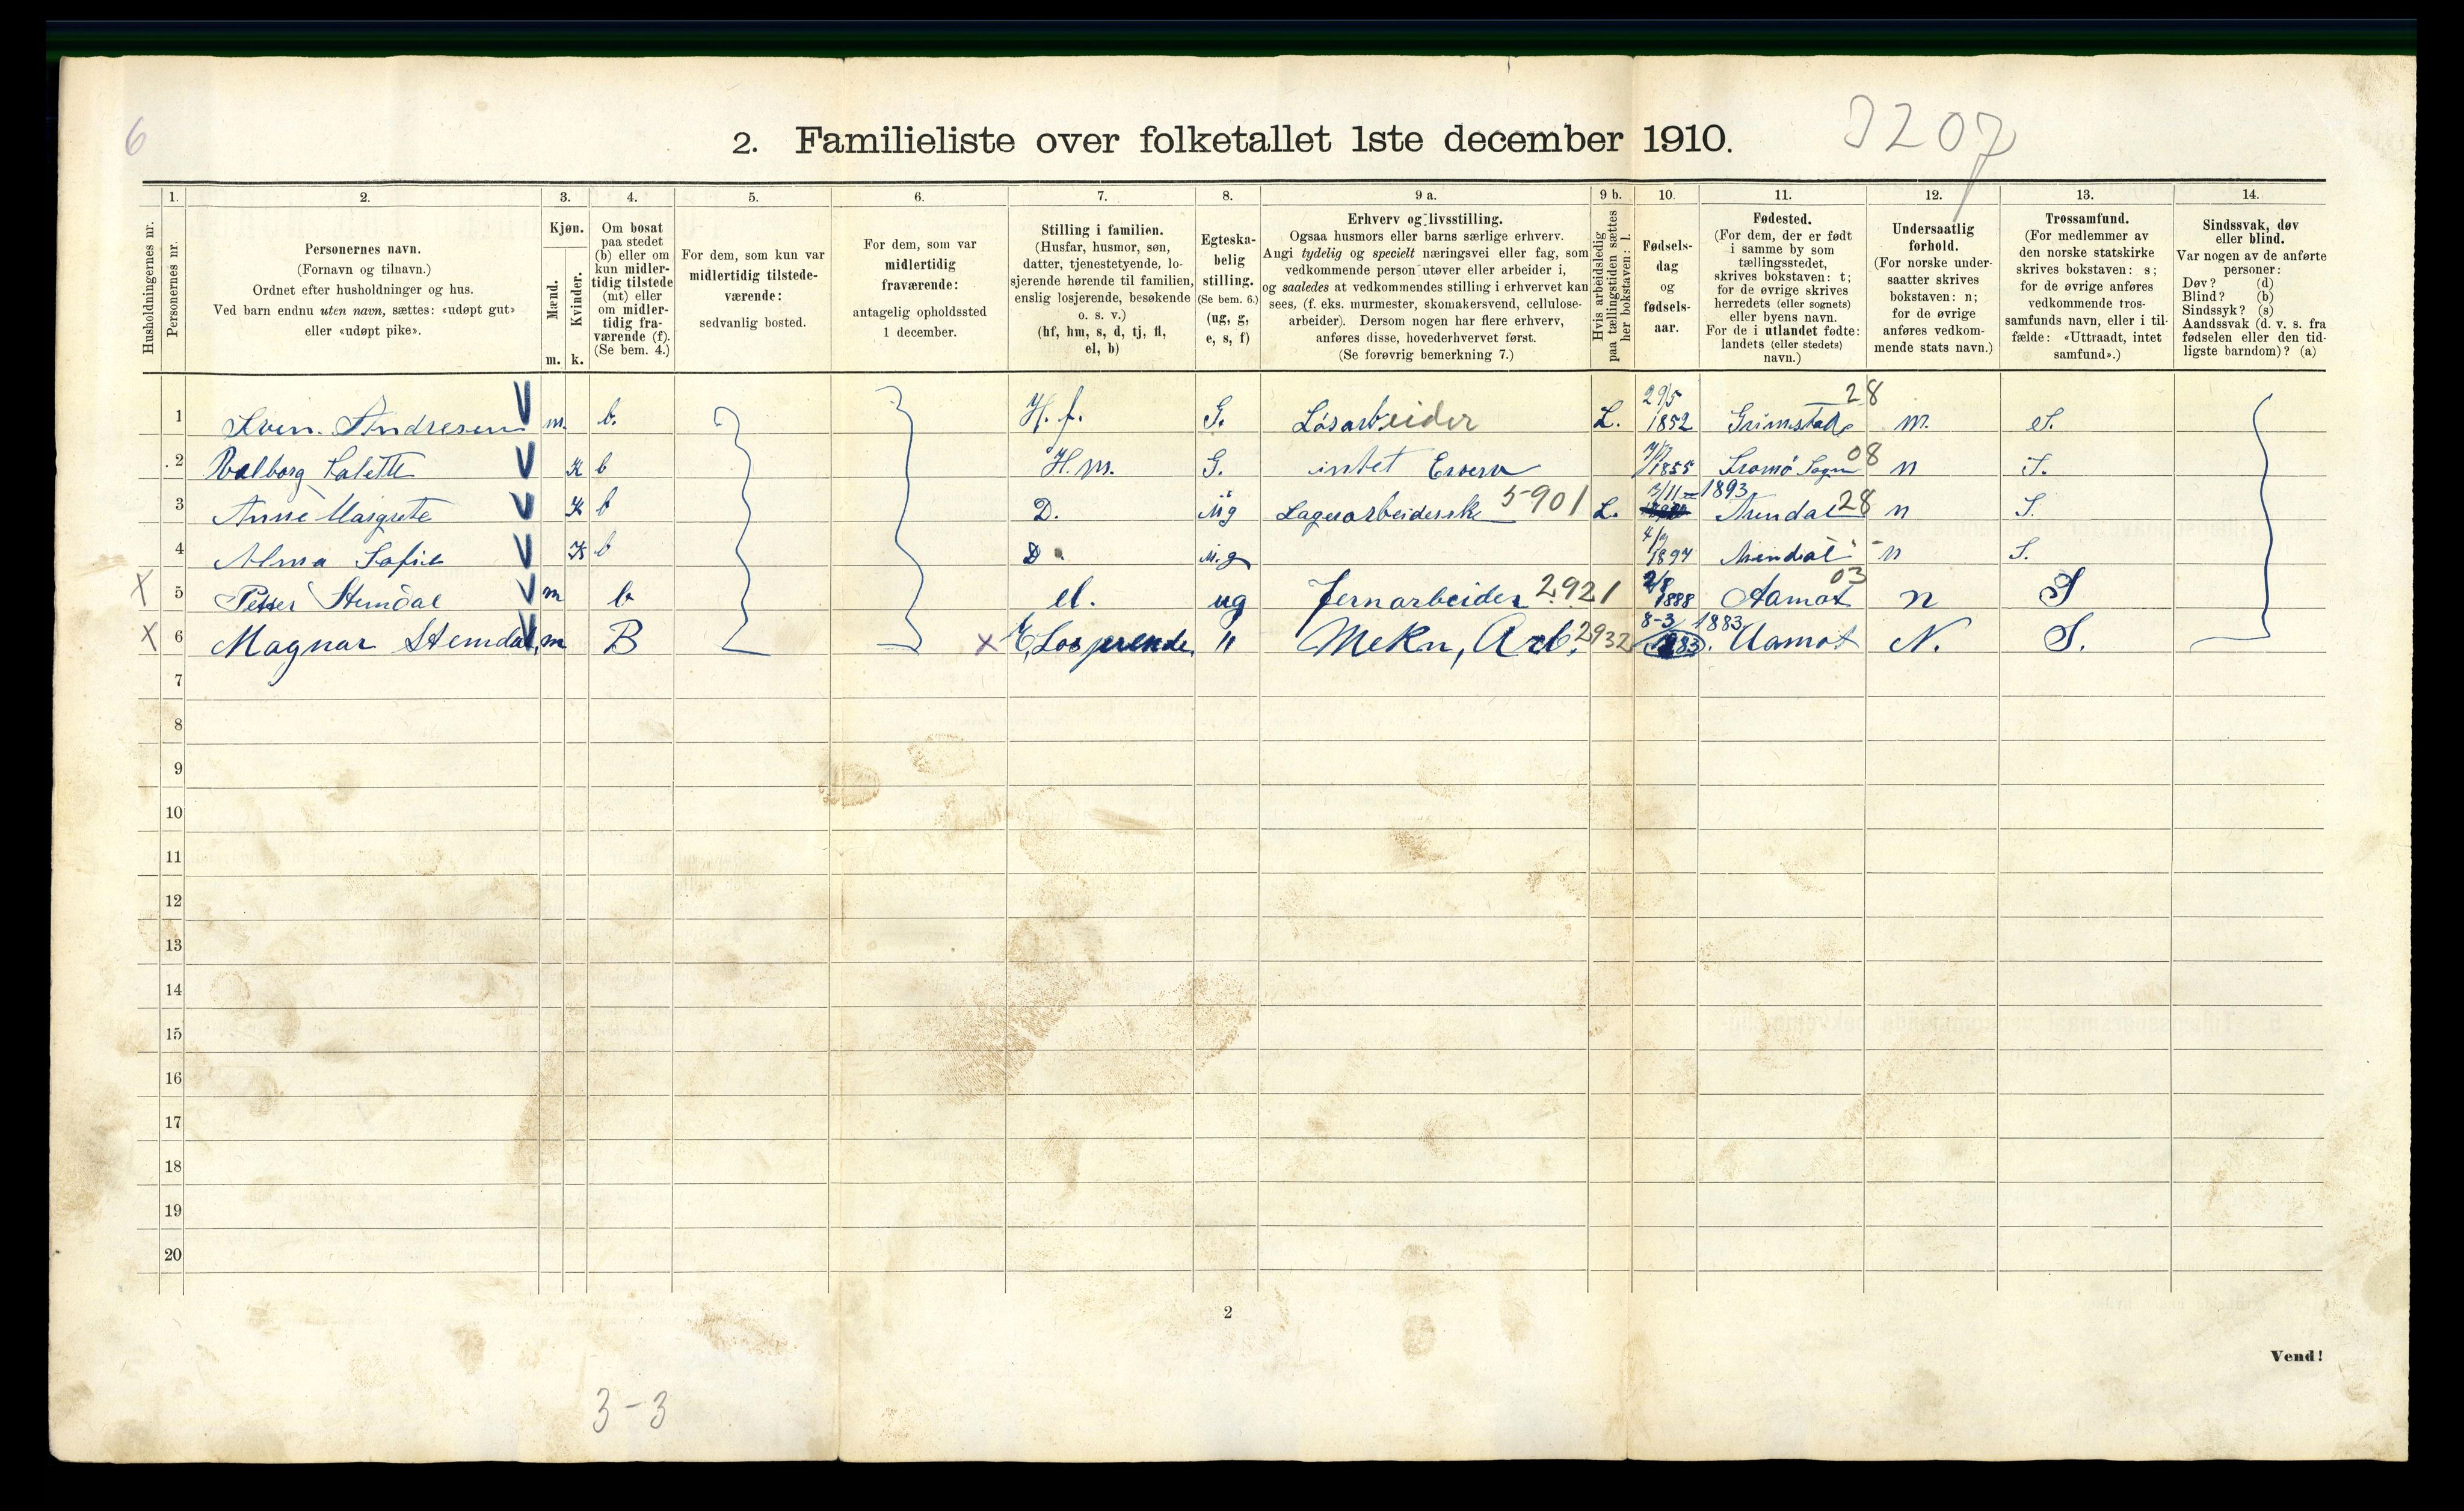 6
2. Familieliste over folketallet 1ste december 1910.
3207
Husholdningernes nr.
1. Personernes nr.
2. Personernes navn. (Fornavn og tilnavn.) Ordnet efter husholdninger og hus. Ved barn endnu uten navn, sættes: «udøpt gut» eller «udøpt pike».
3. Kjøn. Mænd. m. Kvinder. k.
4. Om bosat paa stedet (b) eller om kun midlertidig tilstede (mt) eller om midlertidig fraværende (f). (Se bem. 4.)
5. For dem, som kun var midlertidig tilstedeværende: sedvanlig bosted.
6. For dem, som var midlertidig fraværende: antagelig opholdssted 1 december.
7. Stilling i familien. (Husfar, husmor, søn, datter, tjenestetyende, losjerende hørende til familien, enslig losjerende, besøkende o. s. v.) (hf, hm, s, d, tj, fl, el, b)
8. Egteskabelig stilling. (Se bem. 6.) (ug, g, e, s, f)
9 a. Erhverv og livsstilling. Ogsaa husmors eller barns særlige erhverv. Angi tydelig og specielt næringsvei eller fag, som vedkommende person utøver eller arbeider i, og saaledes at vedkommendes stilling i erhvervet kan sees, (f. eks. murmester, skomakersvend, cellulosearbeider). Dersom nogen har flere erhverv, anføres disse, hovederhvervet først. (Se forøvrig bemerkning 7.)
9 b. Hvis arbeidsledig paa tællingstiden sættes her bokstaven: l.
10. Fødselsdag og fødselsaar.
11. Fødested. (For dem, der er født i samme by som tællingsstedet, skrives bokstaven: t; for de øvrige skrives herredets (eller sognets) eller byens navn. For de i utlandet fødte: landets (eller stedets) navn.)
12. Undersaatlig forhold. (For norske undersaatter skrives bokstaven: n; for de øvrige anføres vedkommende stats navn.)
13. Trossamfund. (For medlemmer av den norske statskirke skrives bokstaven: s; for de øvrige anføres vedkommende trossamfunds navn, eller i tilfælde: «Uttraadt, intet samfund».)
14. Sindssvak, døv eller blind. Var nogen av de anførte personer: Døv? (d) Blind? (b) Sindssyk? (s) Aandssvak (d. v. s. fra fødselen eller den tidligste barndom)? (a)
1 Sven. Andresen V m. b. H. f. G. Løsarbeider L. 29/5 1852 Grimstad 28 S.
2 Valborg Salette V K b H. m. G. intet Erverv 1855 Tromø Sogn 08 n S.
3 Anne Margrete V K b D. ug Lagerarbeiderske 5901 L. 3/11 1893 Arendal 28 n S.
4 Alma Sofie V K b D u.g 1897 Arendal n S.
X 5 Petter Stemdal V m b el. ug Jernarbeider 2921 2/8 1888 Aamot 03 n S
X 6 Magnar Stemdal V m B X E, Losjerende " Mekn, Arb. 2932 8-3 1883 1883. Aamot N. S.
7
8
9
10
11
12
13
14
15
16
17
18
19
20
2
Vend!
3-3